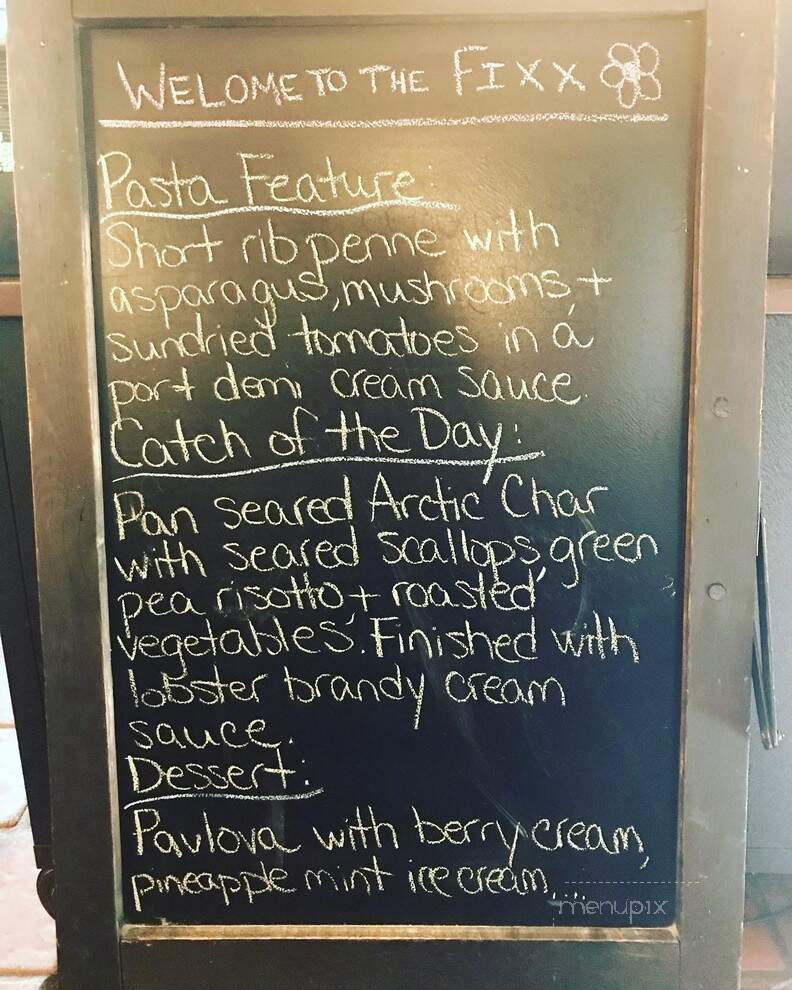 WELOME TO THE FIXX
Pasta Feature:
Short rib penne with
asparagus, mushrooms, +
sundried tomatoes in a
port demi cream sauce.
Catch of the Day:
Pan seared Arctic Char
with seared scallops, green
pea risotto + roasted
vegetables. Finished with
lobster brandy cream
sauce.
Dessert:
Pavlova with berry cream,
pineapple mint ice cream....
menupix